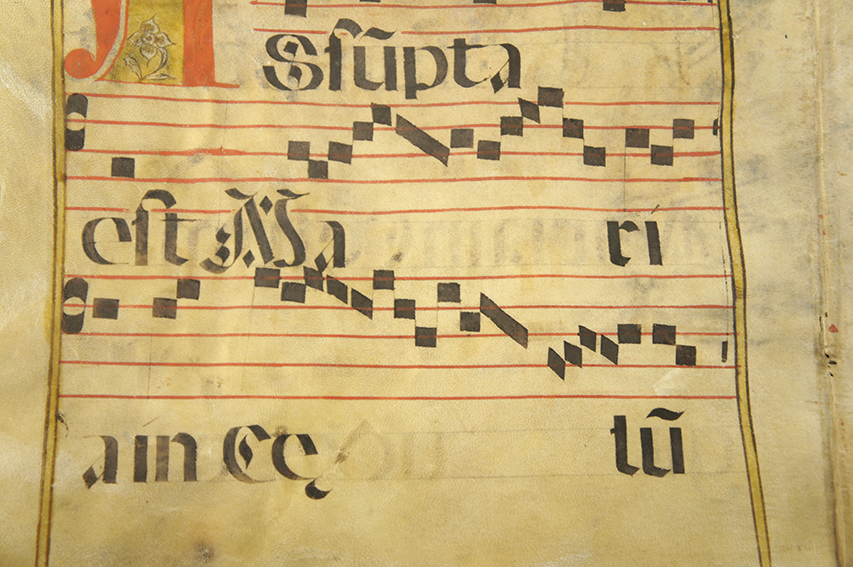 ASſũpta
eſt Ma ri
a in Cę lũ